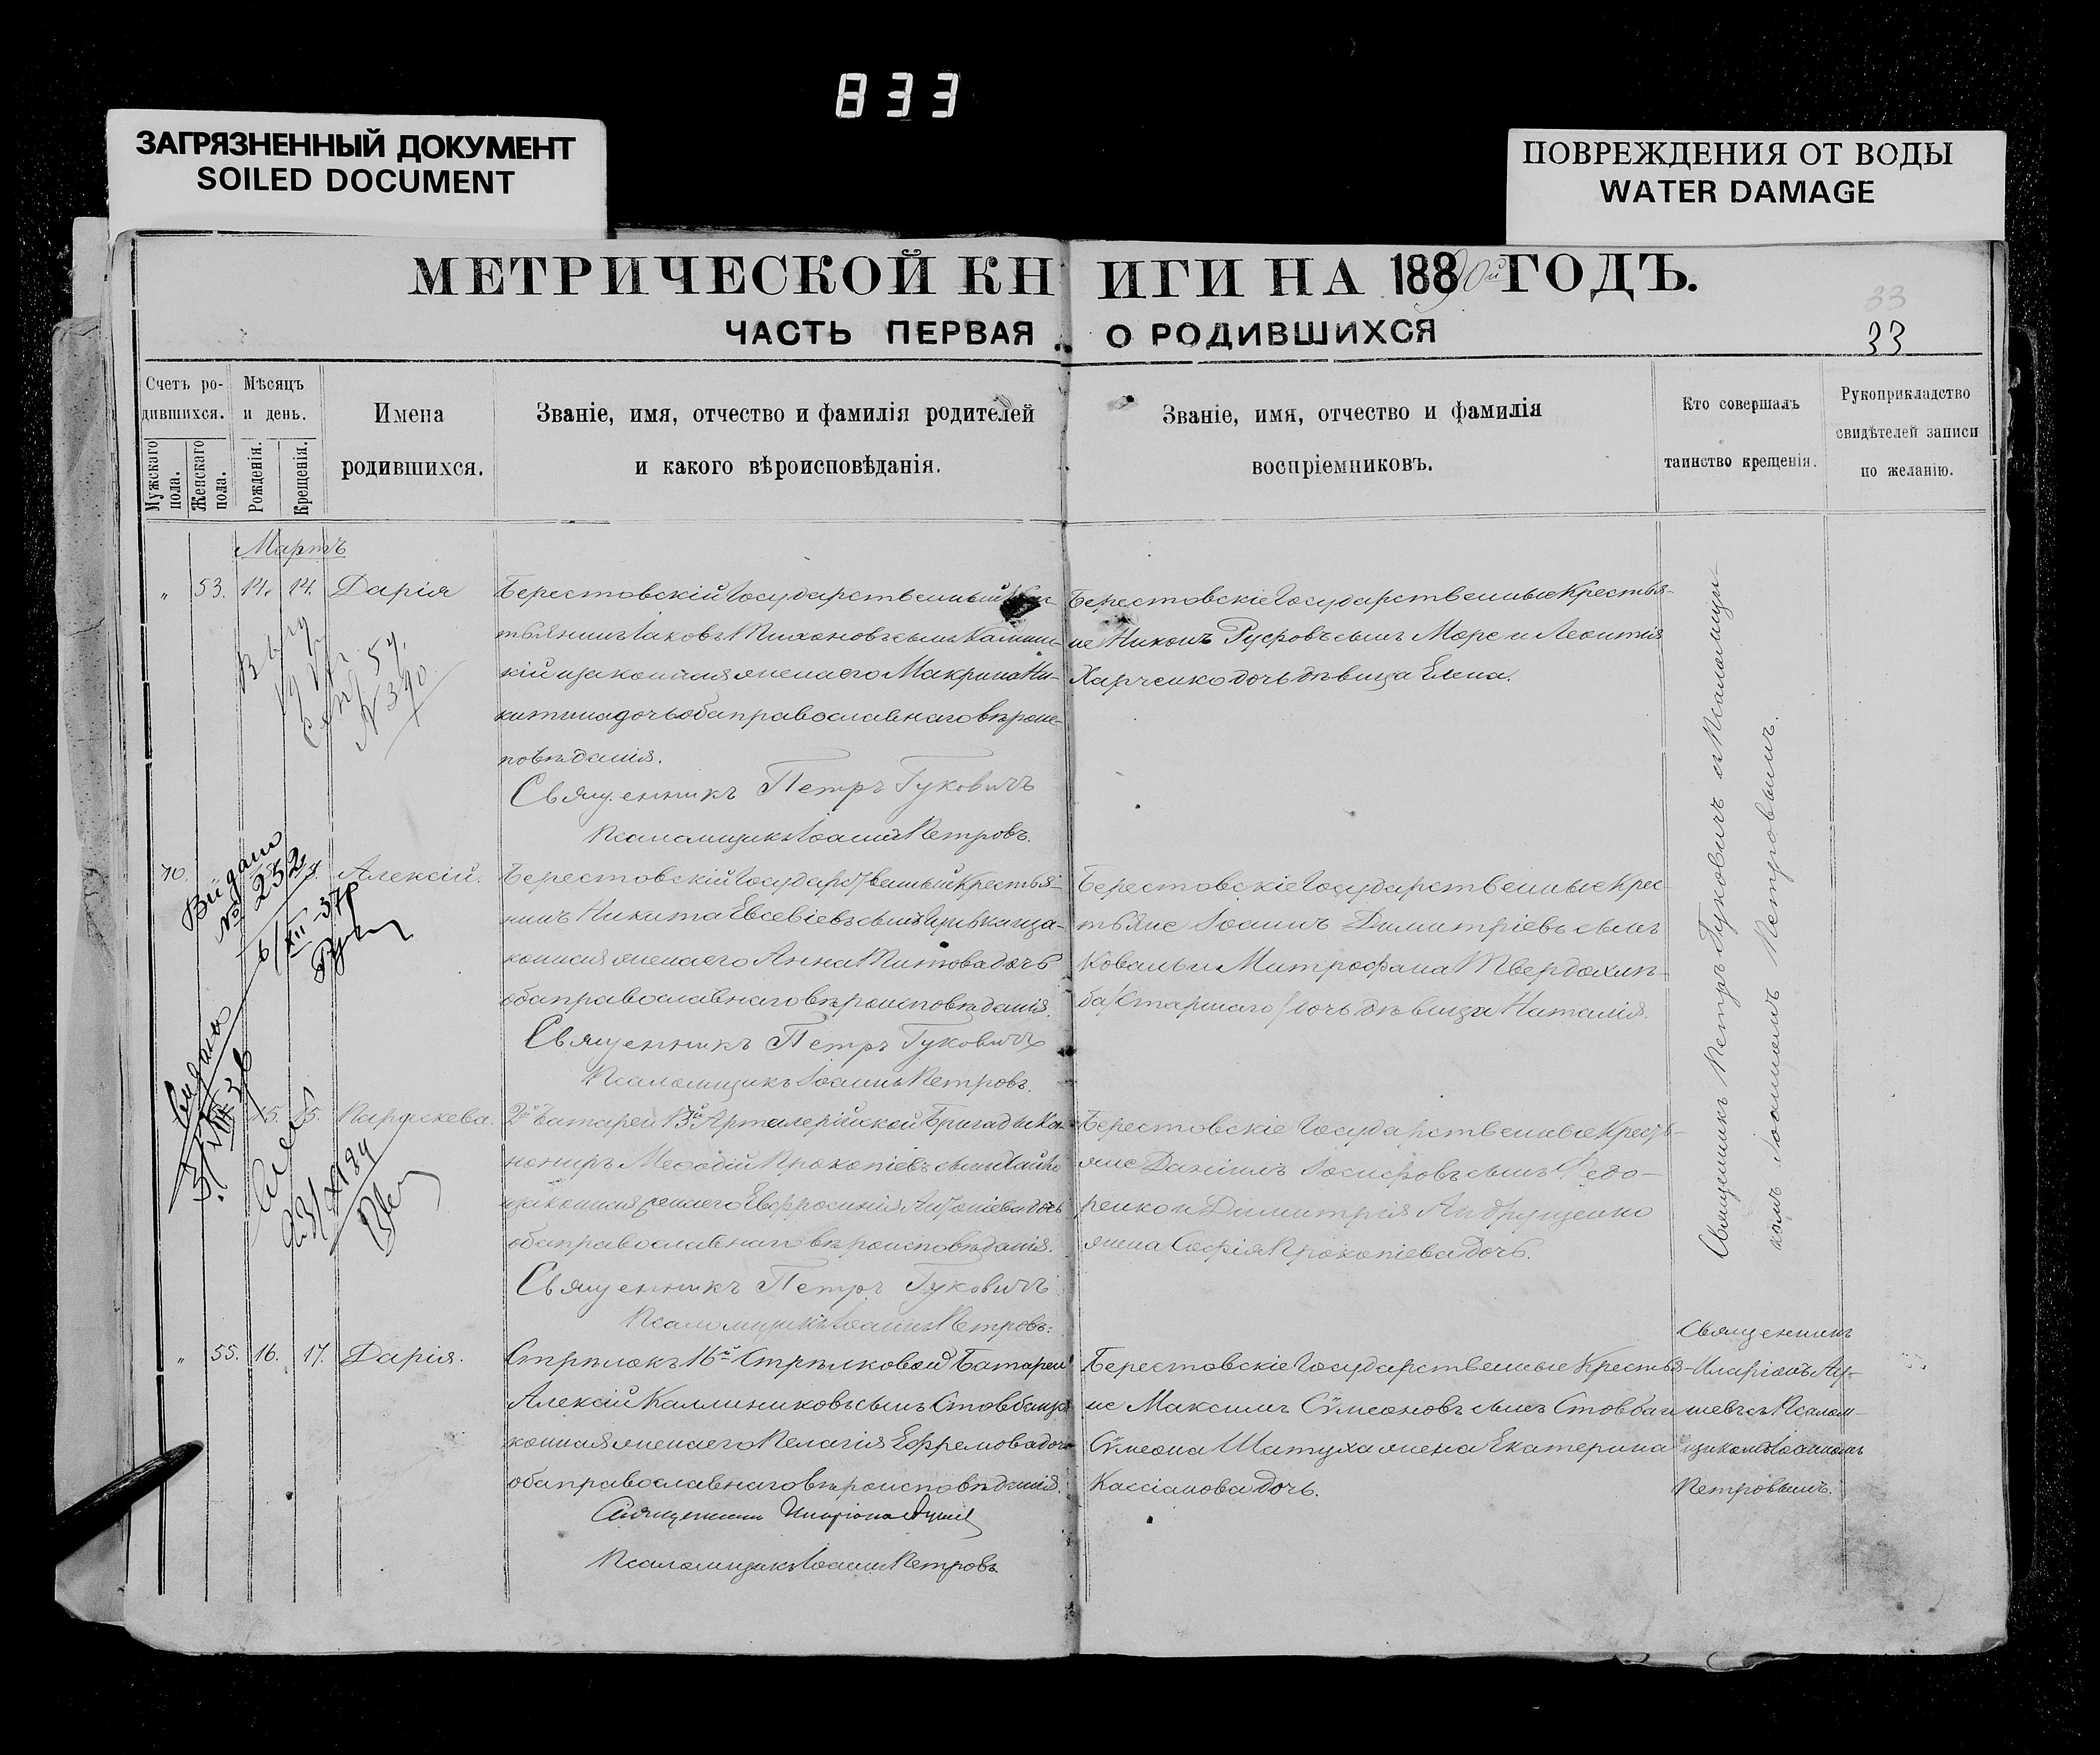 833
ЗАГРЯЗНЕННЫЙ ДОКУМЕНТ
SOILED DOCUMENT
ПОВРЕЖДЕНИЯ ОТ ВОДЫ
WATER DAMAGE
МЕТРИЧЕСКОЙ КНИГИ НА 1890й ГОДЪ.
ЧАСТЬ ПЕРВАЯ О РОДИВШИХСЯ
33
33
Счетъ ро-
дившихся.
Мужскаго пола.
Женскаго пола.
Мѣсяцъ
и день.
Рожденія.
Крещенія.
Имена
родившихся.
Званіе, имя, отчество и фамилія родителей
и какого вѣроисповѣданія.
Званіе, имя, отчество и фамилія
воспріемниковъ.
Кто совершалъ
таинство крещенія.
Рукоприкладство
свидѣтелей записи
по желанію.
Мартъ
" 53. 14. 14. Дарія
Берестовскій Государственный Крес-
тьянинъ Іаковъ Тихоновъ сынъ
кій и законная жена его Макрина Ни-
китина дочь оба православнаго вѣроис-
повѣданія.
Священникъ Петръ Гуковичъ
Псаломщикъ Іоаннъ Петровъ.
Берестовскіе Государственные Крестья-
не Никонъ сынъ Море и Леонтія
Харченко дочь дѣвица Елена.
N 390
70. Алексій.
Видано
№ 2352
6/XII-37р
Берестовскій Государственный Крестья-
нинъ Никита Евсевіевъ сынъ и за-
конная жена его Анна Титова дочь
оба православнаго вѣроисповѣданія.
Священникъ Петръ Гуковичъ
Псаломщикъ Іоаннъ Петровъ.
Берестовскіе Государственные Крес-
тьяне Іоаннъ Димитріевъ сынъ
Коваль и Митрофана Твердохлѣ-
ба /Старшаго/ дочь дѣвица Наталія.
15. 15. Параскева.
2й Батареи 13й Арталерійской Бригады Ка-
нониръ Меѳодій Прокопіевъ сынъ
и законная жена его Евфросинія Антоніева дочь
оба православнаго вѣроисповѣданія.
Священникъ Петръ Гуковичъ
Псаломщикъ Іоаннъ Петровъ.
Берестовскіе Государственные Кресть-
яне Даніилъ Іосифовъ сынъ Федо-
ренко и Димитрія Андрущенко
жена Софія Прокопіева дочь.
Священникъ Петръ Гуковичъ съ Псаломщи-
комъ Іоанномъ Петровымъ.
" 55. 16. 17. Дарія.
Стрѣлокъ 16й Стрѣлковой Батареи
Алексій Каллиниковъ сынъ
конная жена его Пелагія Ефремова дочь
оба православнаго вѣроисповѣданія.
Священникъ
Псаломщикъ Іоаннъ Петровъ.
Берестовскіе Государственные Крестья-
не Максимъ Сѵмеоновъ сынъ
Сѵмеона Шатуха жена Екатерина
Кассіанова дочь.
Священникъ
Иларіонъ
съ Псалом-
щикомъ Іоанномъ
Петровымъ.